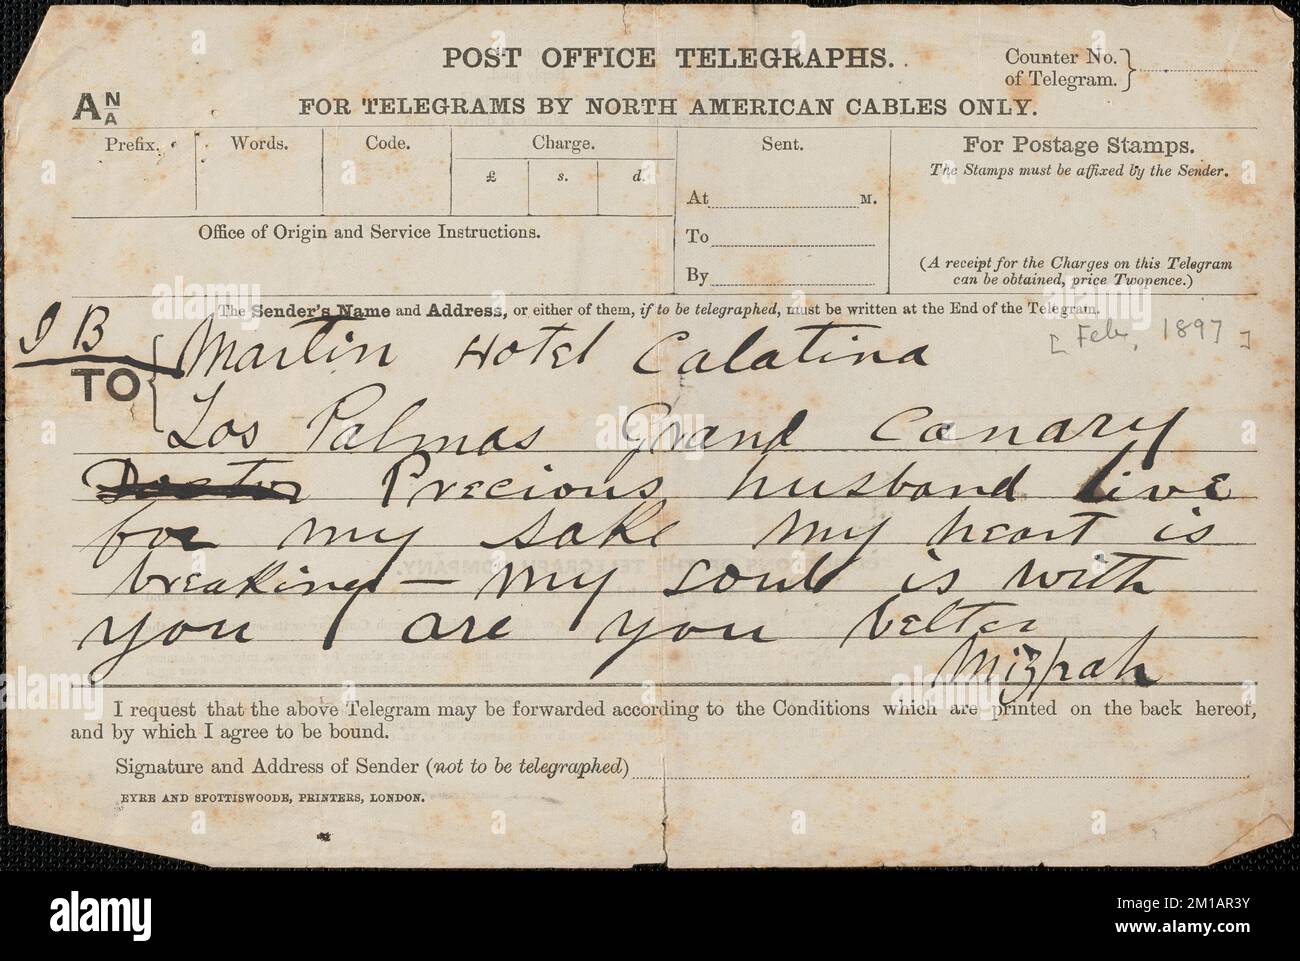 POST OFFICE TELEGRAPHS.
Counter No.
of Telegram.
A N A
FOR TELEGRAMS BY NORTH AMERICAN CABLES ONLY.
Prefix. Words. Code. Charge. Sent. For Postage Stamps.
£ s. d.
The Stamps must be affixed by the Sender.
At M.
To
By
Office of Origin and Service Instructions.
(A receipt for the Charges on this Telegram
can be obtained, price Twopence.)
The Sender's Name and Address, or either of them, if to be telegraphed, must be written at the End of the Telegram.
[Feb. 1897]
I B
TO
Martin Hotel Catalina
Los Palmas Grand Canary
Doctor Precious husband live
for my sake my heart is
breaking — my soul is with
you are you better
Mizpah
I request that the above Telegram may be forwarded according to the Conditions which are printed on the back hereof,
and by which I agree to be bound.
Signature and Address of Sender (not to be telegraphed)
EYRE AND SPOTTISWOODE, PRINTERS, LONDON.
alamy
Image ID: 2M1AR3Y
www.alamy.com